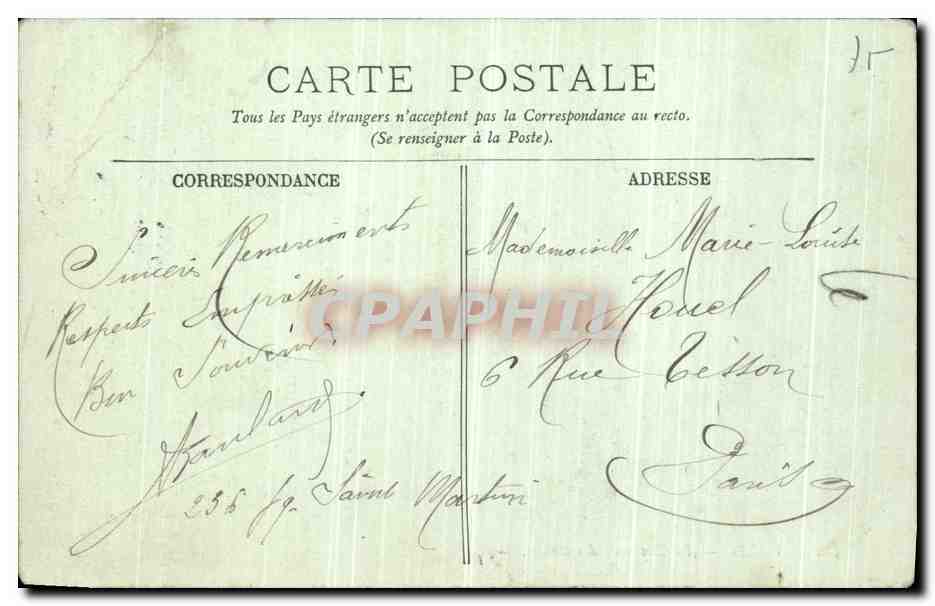 CARTE POSTALE
Tous les Pays étrangers n'acceptent pas la Correspondance au recto.
(Se renseigner à la Poste).
CORRESPONDANCE
ADRESSE
Sincères Remerciments
Respects Empressés
Bon Souvenir
236 fg. Saint Martin
Mademoiselle Marie-Louise
Houel
6 Rue Tesson
Paris
CPAPHIL